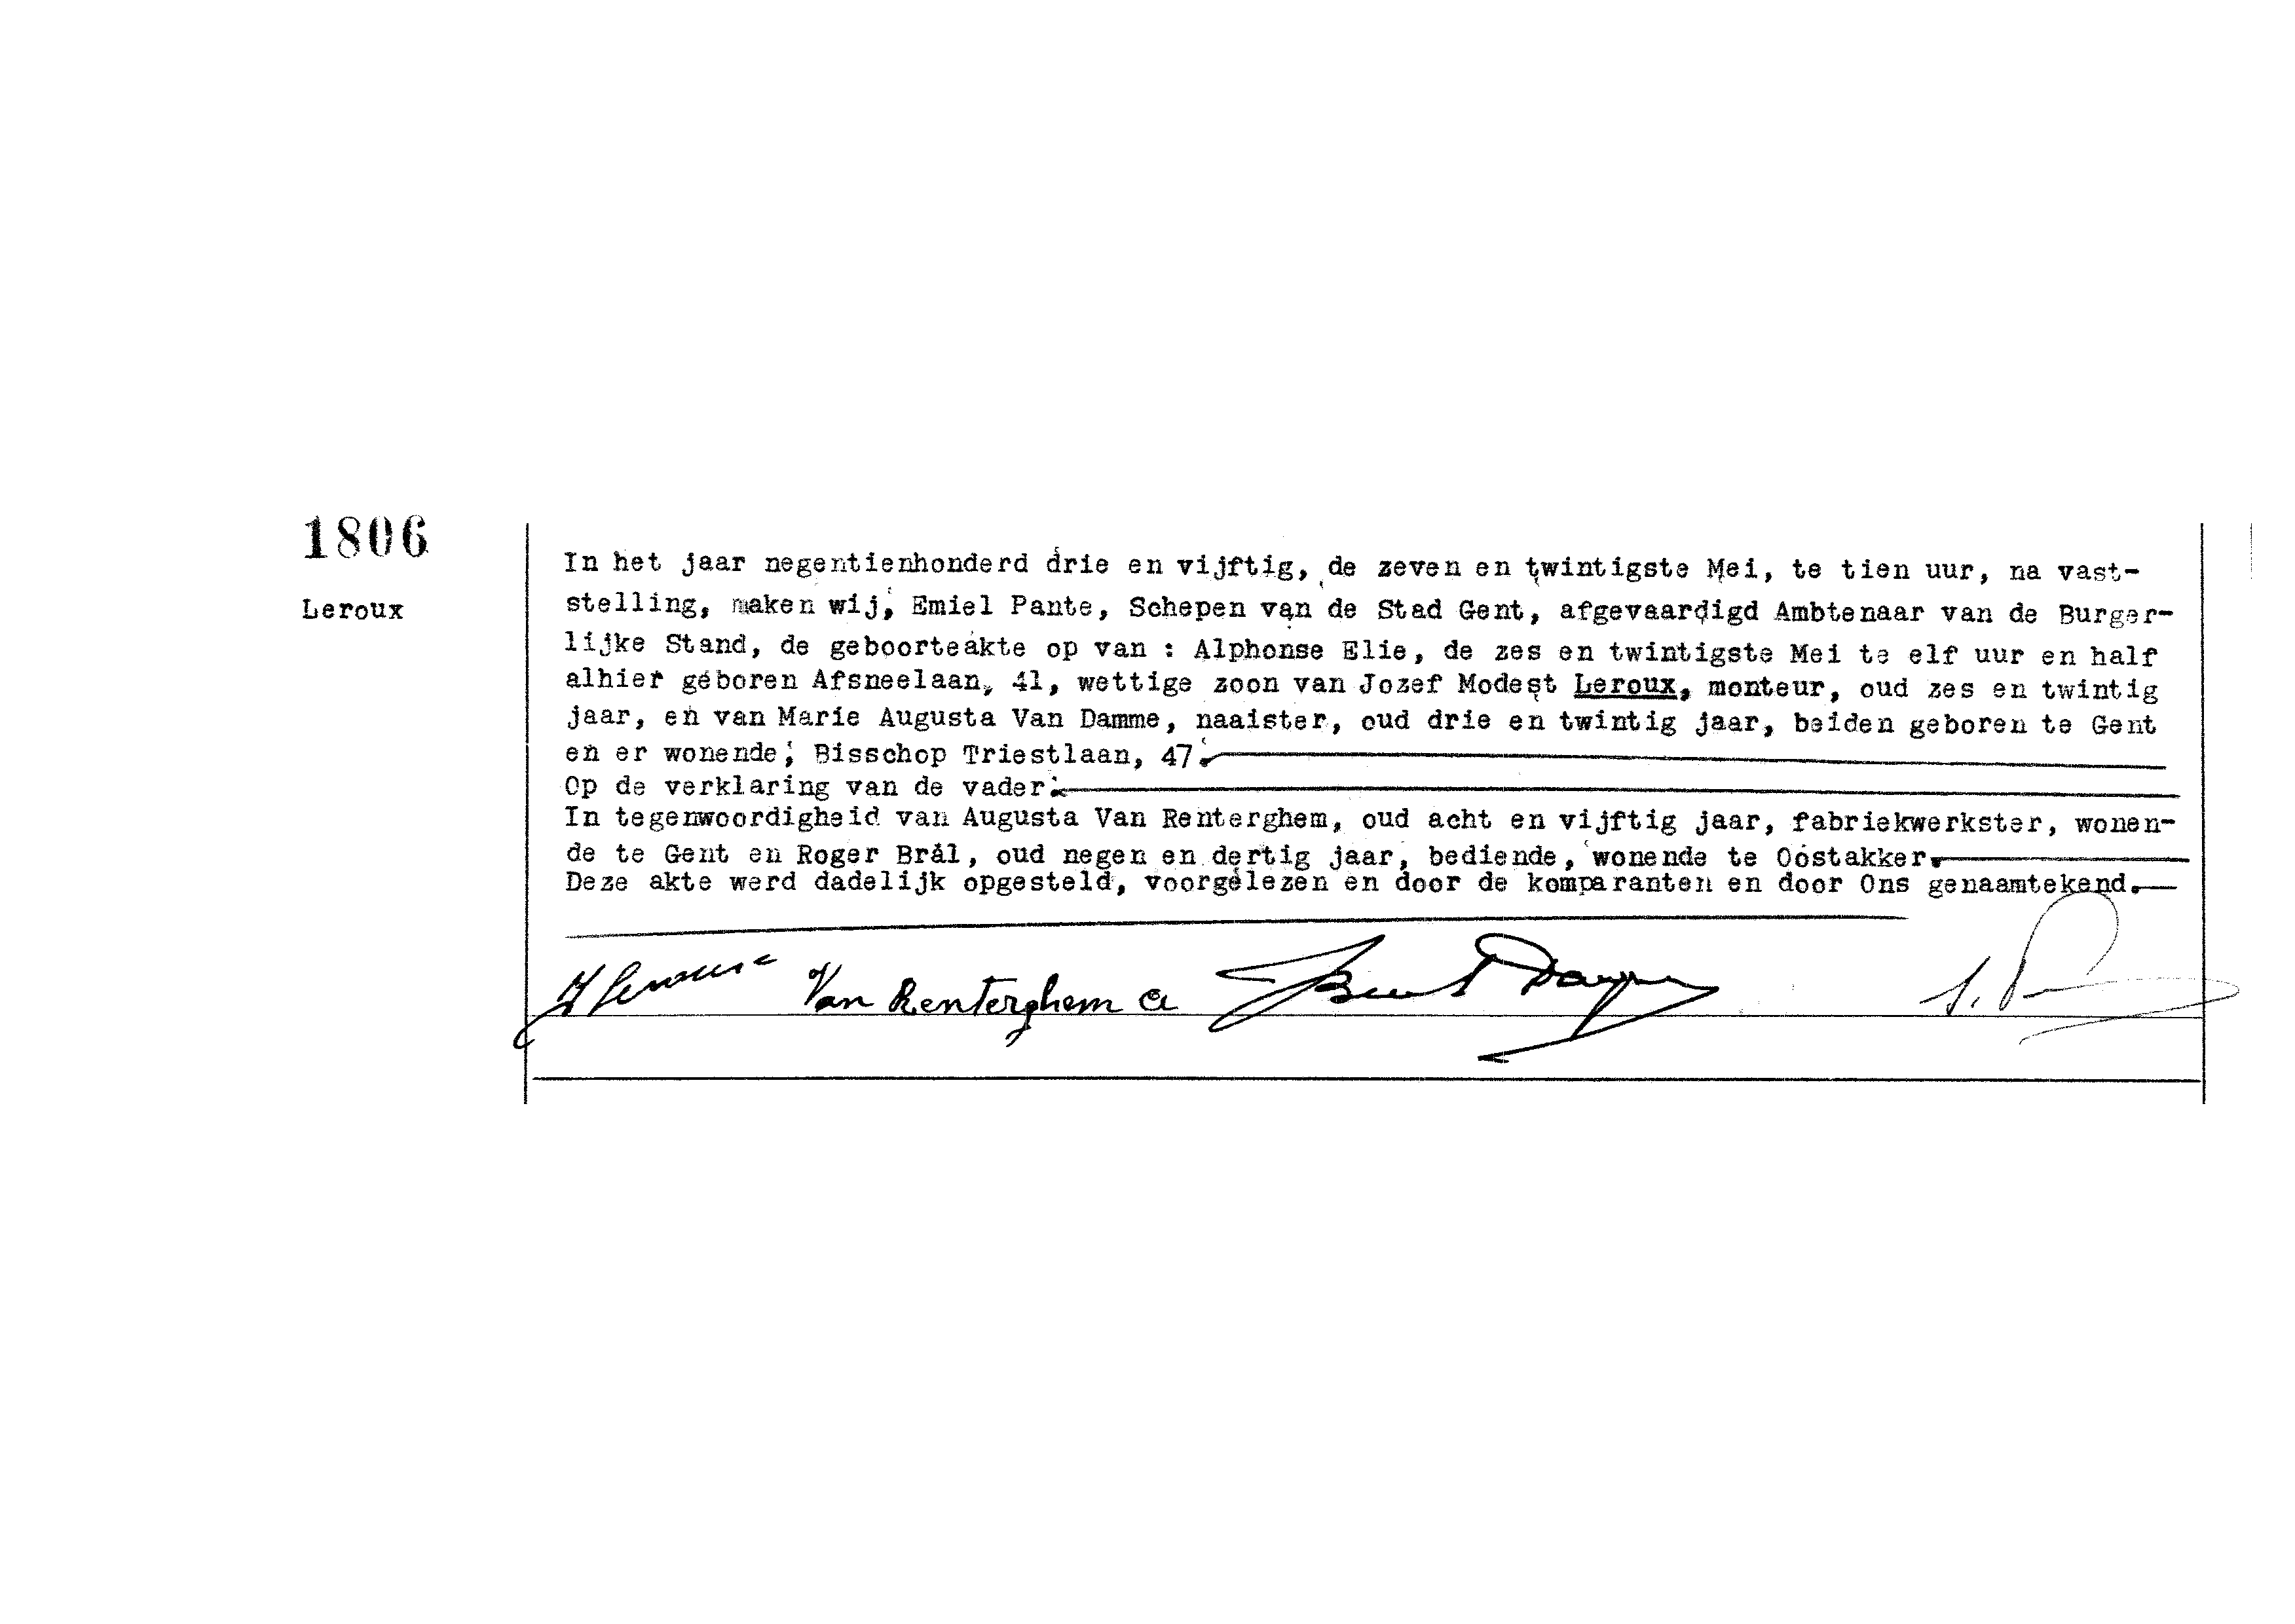 1806
Leroux
In het jaar negentienhonderd drie en vijftig, de zeven en twintigste Mei, te tien uur, na vast-
stelling, maken wij, Emiel Pante, Schepen van de Stad Gent, afgevaardigd Ambtenaar van de Burger-
lijke Stand, de geboorteakte op van : Alphonse Elie, de zes en twintigste Mei te elf uur en half
alhier geboren Afsneelaan, 41, wettige zoon van Jozef Modest Leroux, monteur, oud zes en twintig
jaar, en van Marie Augusta Van Damme, naaister, oud drie en twintig jaar, beiden geboren te Gent
en er wonende, Bisschop Triestlaan, 47.
Op de verklaring van de vader.
In tegenwoordigheid van Augusta Van Renterghem, oud acht en vijftig jaar, fabriekwerkster, wonen-
de te Gent en Roger Brál, oud negen en dertig jaar, bediende, wonende te Oostakker.
Deze akte werd dadelijk opgesteld, voorgelezen en door de komparanten en door Ons genaamtekend.
J Leroux Van Renterghem A